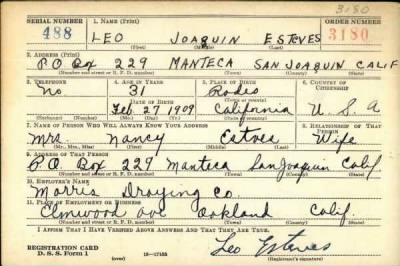 3180
SERIAL NUMBER 1. NAME (Print) ORDER NUMBER
488 LEO JOAQUIN ESTEVES 3180
(First) (Middle) (Last)
2. ADDRESS (Print)
P.O Box 229 MANTECA SAN JOAQUIN CALIF
(Number and street or R. F. D. number) (Town) (County) (State)
3. TELEPHONE 4. AGE IN YEARS 5. PLACE OF BIRTH 6. COUNTRY OF CITIZENSHIP
No. 31 Rodeo
DATE OF BIRTH (Town or county)
Feb 27 1909 California U.S.A
(Mo.) (Day) (Yr.) (State or country)
7. NAME OF PERSON WHO WILL ALWAYS KNOW YOUR ADDRESS 8. RELATIONSHIP OF THAT PERSON
Mrs. Nancy Esteves Wife
(Mr., Mrs., Miss) (First) (Middle) (Last)
9. ADDRESS OF THAT PERSON
P.O Box 229 Manteca San Joaquin Calif
(Number and street or R. F. D. number) (Town) (County) (State)
10. EMPLOYER'S NAME
Morris Draying Co.
11. PLACE OF EMPLOYMENT OR BUSINESS
Elmwood ave Oakland Calif.
(Number and street or R. F. D. number) (Town) (County) (State)
I AFFIRM THAT I HAVE VERIFIED ABOVE ANSWERS AND THAT THEY ARE TRUE.
REGISTRATION CARD
D. S. S. Form 1 16—17105 Leo Esteves
(over) (Registrant's signature)